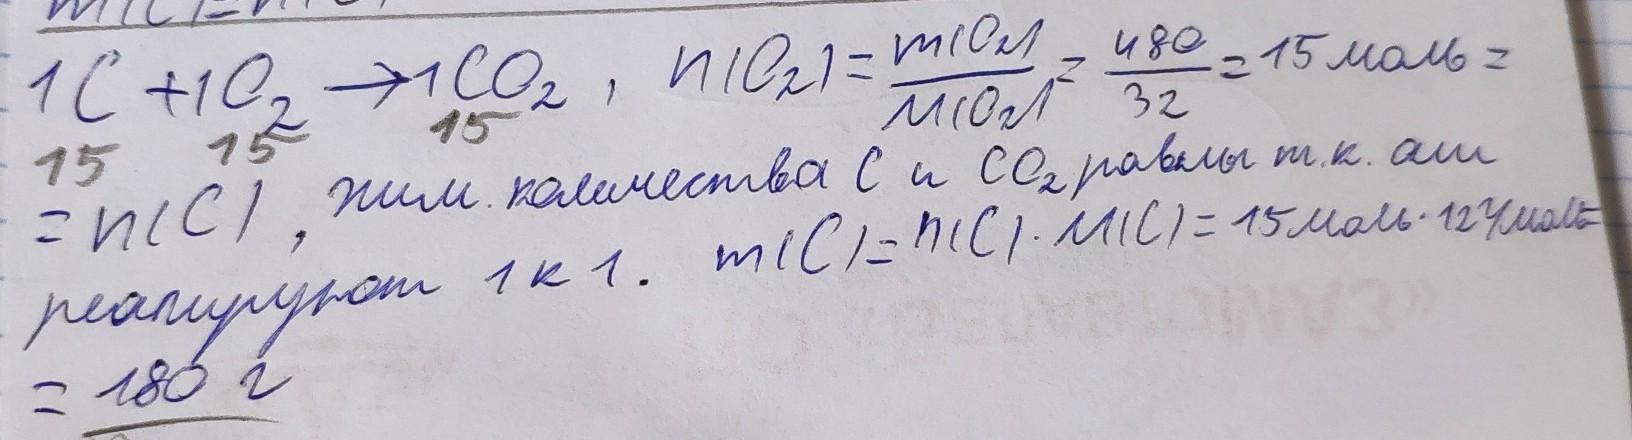 1C + 1O₂ → 1CO₂, n(O₂) = m(O₂)/M(O₂) = 480/32 = 15 моль =
15 15 15
= n(C), хим. количества C и CO₂ равны т.к. они
реагируют 1 к 1. m(C) = n(C) · M(C) = 15 моль · 12 г/моль =
= 180 г